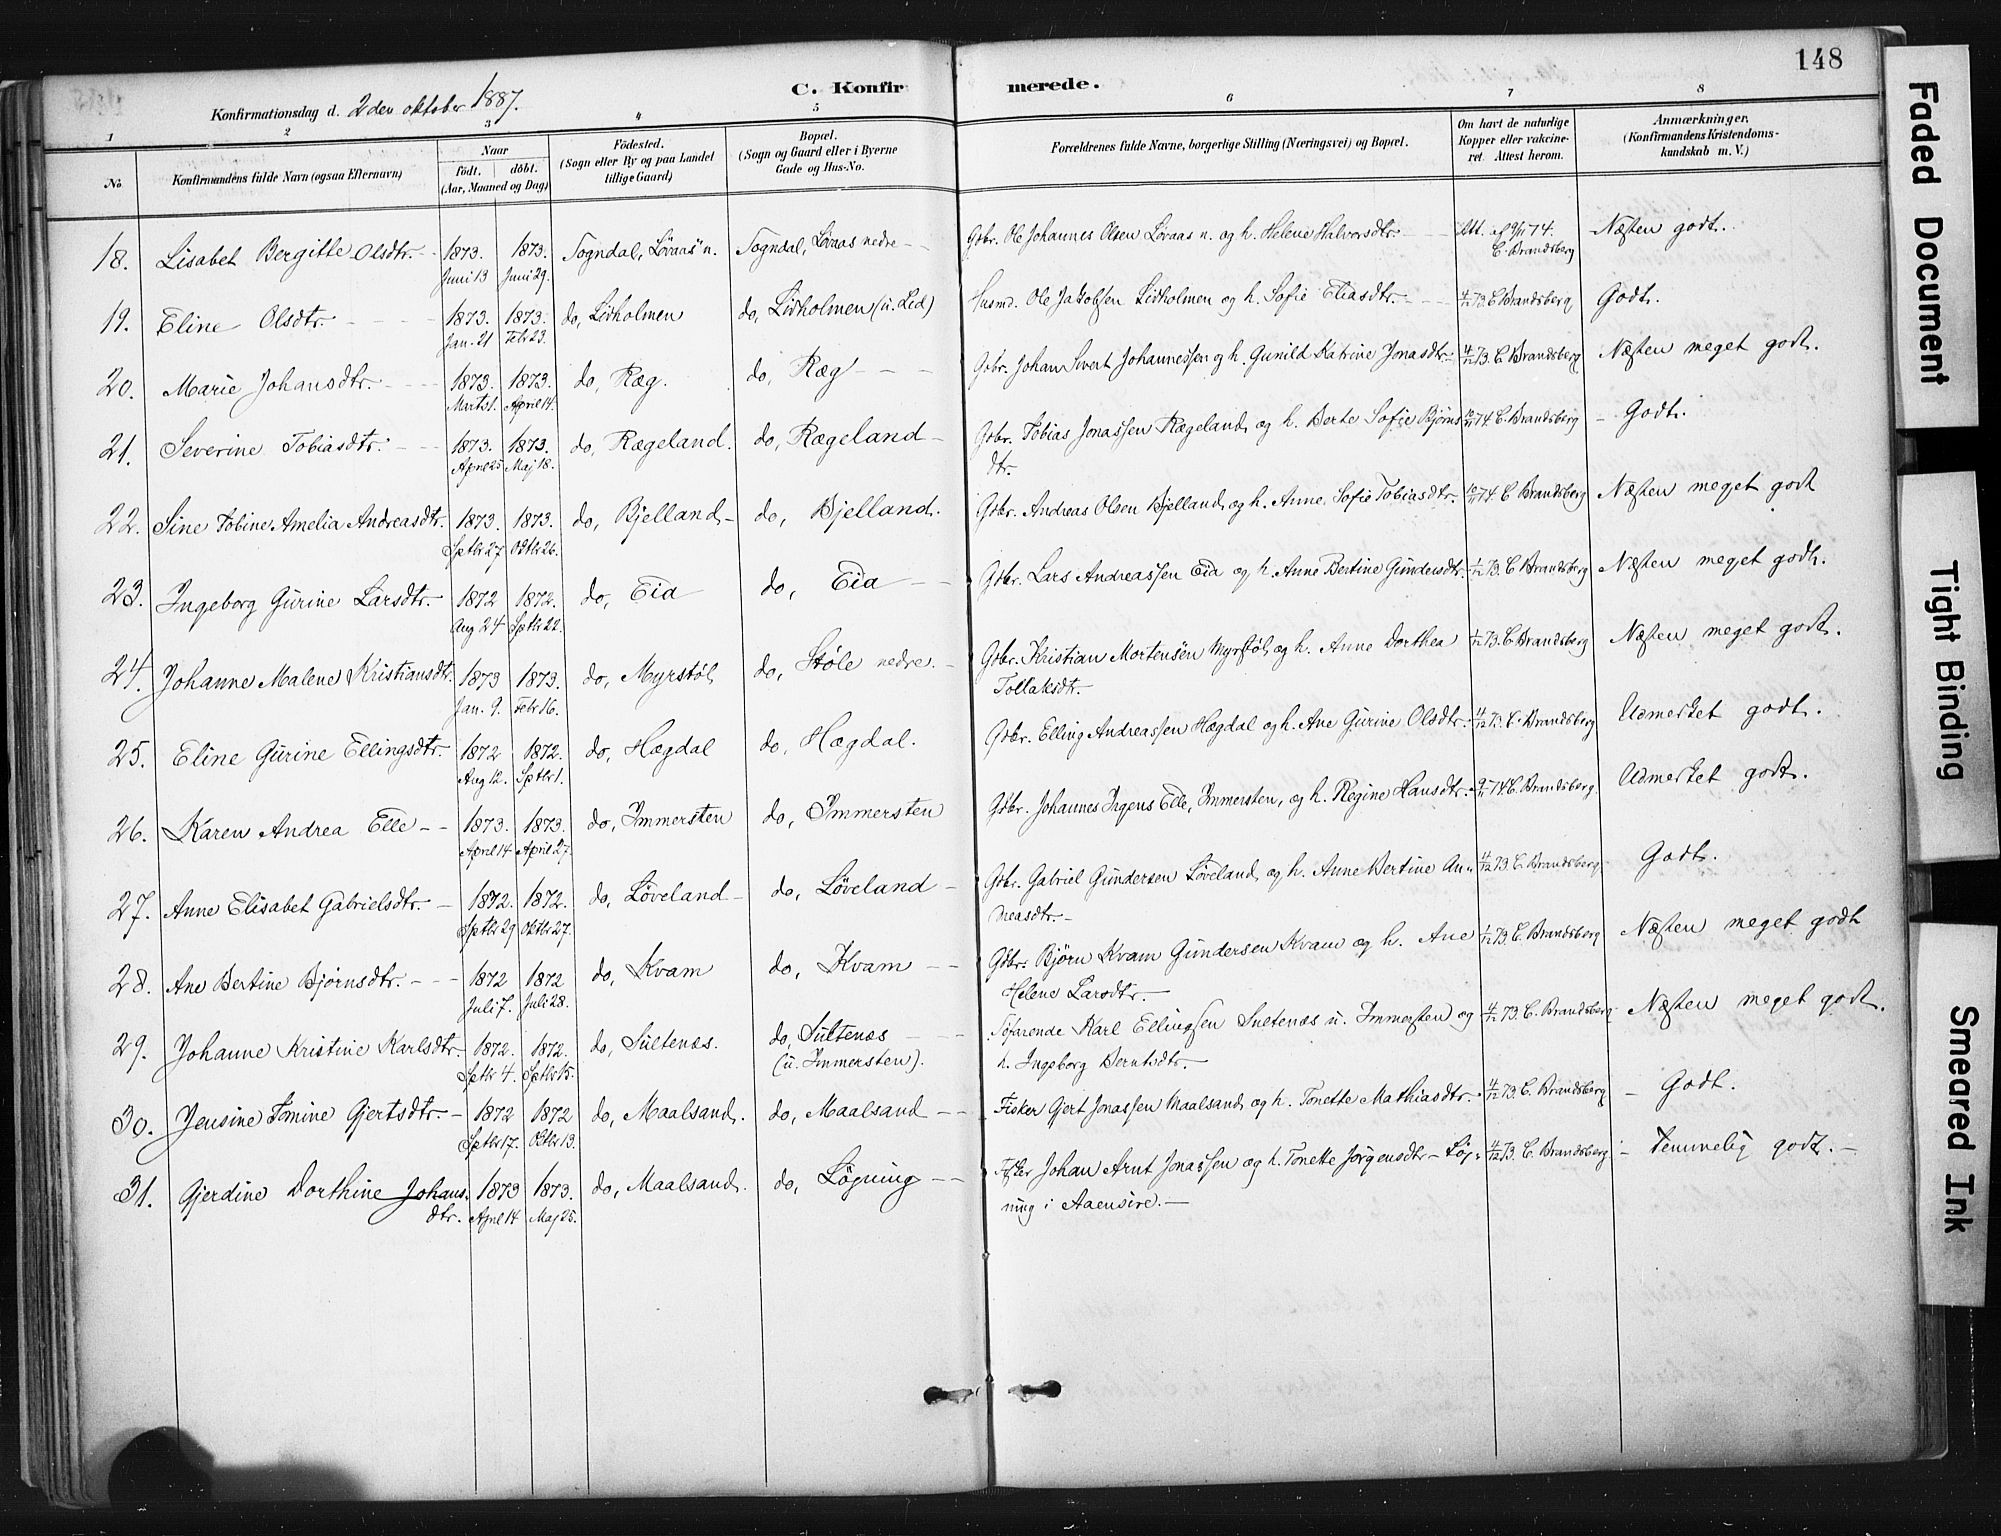 148
C. Konfirmerede.
Konfirmationsdag d. 2den oktober 1887.
1 2 3 4 5 6 7 8
No.
Konfirmandens fulde Navn (ogsaa Efternavn)
Naar
født. döbt.
(Aar, Maaned og Dag)
Födested.
(Sogn eller By og paa Landet
tillige Gaard)
Bopæl.
(Sogn og Gaard eller i Byerne
Gade og Hus-No.
Forældrenes fulde Navne, borgerlige Stilling (Næringsvei) og Bopæl.
Om havt de naturlige
Kopper eller vakcine-
ret. Attest herom.
Anmærkninger.
(Konfirmandens Kristendoms-
kundskab m. V.)
18. Lisabet Bergitte Olsdtr. 1873. 1873. Sogndal, Løvaas n. Sogndal, Løvaas nedre Gbr. Ole Johannes Olsen Løvaas n. og h. Helene Halvorsdtr. Att. af 9/11 74. Næsten godt.
Juni 13 Juni 29. C. Brandsberg
19. Eline Olsdtr. 1873. 1873. do, Lidholmen do, Lidholmen (u. Lid) Husmd. Ole Jakobsen Lidholmen og h. Sofie Eliasdtr. 4/12 73. C. Brandsberg Godt.
Jan. 21 Febr 23.
20. Marie Johansdtr. 1873. 1873. do, Ræg. do, Ræg Gbr. Johan Sivert Johannessen og h. Gunild Katrine Jonasdtr. 4/12 73. C. Brandsberg Næsten meget godt.
Marts 1. April 14.
21. Severine Tobiasdtr. 1873. 1873. do, Rægeland. do, Rægeland Gbr. Tobias Jonassen Rægeland og h. Berte Sofie Bjørns 10/11 74. C. Brandsberg Godt.
April 25 Maj 18. dtr.
22. Sine Tobine Amelia Andreasdtr. 1873. 1873. do, Bjelland do, Bjelland. Gbr. Andreas Olsen Bjelland og h. Anne Sofie Tobiasdtr. 10/11 74. C. Brandsberg Næsten meget godt
Septbr 27 Oktbr 26.
23. Ingeborg Gurine Larsdtr. 1872 1872. do, Eia do, Eia Gbr. Lars Andreassen Eia og h. Anne Bertine Gundersdtr. 1/12 73. C. Brandsberg Næsten meget godt.
Aug 24 Septbr 22.
24. Johanne Malene Kristiansdtr. 1873 1873. do, Myrstøl do, Støle nedre. Gbr. Kristian Mortensen Myrstøl og h. Anne Dorthea 1/12 73. C. Brandsberg Næsten meget godt.
Jan. 9. Febr 16. Tollaksdtr.
25. Eline Gurine Ellingsdtr. 1872 1872. do, Hægdal do, Hægdal. Gbr. Elling Andreassen Hægdal og h. Ane Gurine Olsdtr. 4/12 73. C. Brandsberg Udmerket godt.
Aug 12. Septbr 1.
26. Karen Andrea Elle 1873. 1873. do, Immersten do, Immersten Gbr. Johannes Irgens Elle, Immersten, og h. Regine Hansdtr. 9/11 74 C. Brandsberg. Udmerket godt.
April 14 April 27.
27. Anne Elisabet Gabrielsdtr. 1872. 1872. do, Løveland do, Løveland Gbr. Gabriel Gundersen Løveland og h. Anne Bertine An- 4/12 73. C. Brandsberg. Godt.
Septbr 29 Oktbr 27. neasdtr.
28. Ane Bertine Bjørnsdtr. 1872 1872 do, Kvam do, Kvam Gbr. Bjørn Kvam Gundersen Kvam og h. Ane 1/12 73. C. Brandsberg Næsten meget godt
Juli 7. Juli 28. Helene Larsdtr.
29. Johanne Kristine Karlsdtr. 1872. 1872. do, Sultenæs. do, Sultenæs Søfarende Karl Ellingsen Sultenæs u. Immersten og 4/12 73. C. Brandsberg Næsten meget godt.
Septbr 4. Septbr 15. (u. Immersten). h. Ingeborg Berntsdtr.
30. Jensine Tomine Gjertsdtr. 1872 1872 do, Maalsand. do, Maalsand Fisker Gjert Jonassen Maalsand og h. Tonette Mathiasdtr. 4/12 73. C. Brandsberg Godt.
Septbr 17. Oktbr 13.
31. Gjerdine Dorthine Johans 1873 1873. do, Maalsand. do, Løgning Johan Arnt Jonassen og h. Tonette Jørgensdtr. Løg- 4/12 73. C. Brandsberg Temmelig godt.
dtr. April 14 Maj 25. ning i Aaensire.
Faded Document
Tight Binding
Smeared Ink